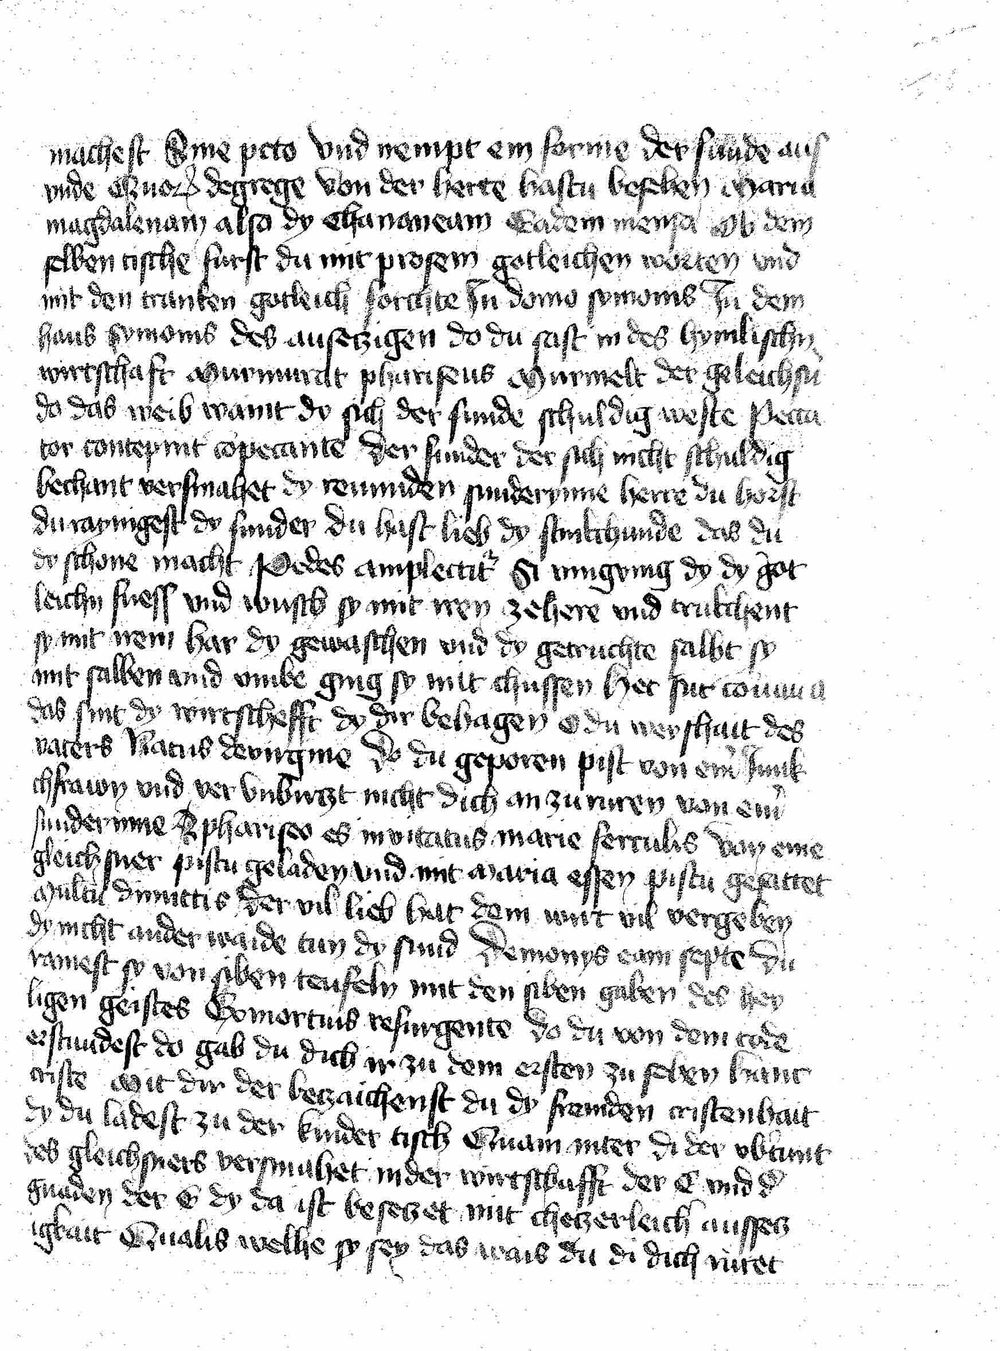 machest Sine pcto vnd nempt ein forme der sunde aus
vnde Quor degrege von der herte hastu besehen Maria
magdalenam also dy Chananeam Eadem mensa Ob dem
selben tische furst du mit prosem gotleichen worten vnd
mit den tranken gotleich forchte In domo symonis In dem
haus symonis des ausetzigen do du sast in des hymlischn
wirtschaft Murmurat phariseus Murmelt der geleichsn
do das weib waint dy sich der sunde schuldig weste Pecca
tor contepnit copecante der sunder der sich nicht schuldig
bechant versmahet dy reuunden sunderynne herre du horst
du raynigest dy sunder du hast lieb dy stinkchunde das du
dy schone macht Pedes amplectitr Si vmgving dy dy got
leichn fuess vnd wusch sy mit iren zehere vnd trukchent
sy mit irem har dy gewaschen vnd dy getruchte salbt sy
mit salben vnd vmbe ging sy mit chussen Hec sut conuiua
das sint dy wirtschefft dy dir behagen O du weyshait des
vaters Natus devirgine Do du geporen pist von em Junk
chfrawn vnd ver vnbirgzt nicht dich an zu ruren von em
sunderinne A phariseo es inuitatus marie ferculis von eine
gleichsner pistu geladen vnd mit Maria essen pistu gesattet
Multu dimittis der vil lieb hat dem wirt vil vergeben
dy nicht ander waide tun dy sund Demonys eam septe du
rainest sy von siben teufeln mit den siben gaben des hey
ligen geistes Exmortuis resurgente do du von dem tode
erstundest do gab du dich ir zu dem ersten zu sehen hanc
criste Mit dir der betzaichenst du dy fremden cristenhait
dy du ladest zu der kinder tisch Quam inter di der vbtunt
des gleichsners versmahet in der wirtschafft der E vnd d
gnaden der E dy da ist besetzet mit chetzerleich aussetz
igkait Qualis welhe sy sey das wais du di dich ruret